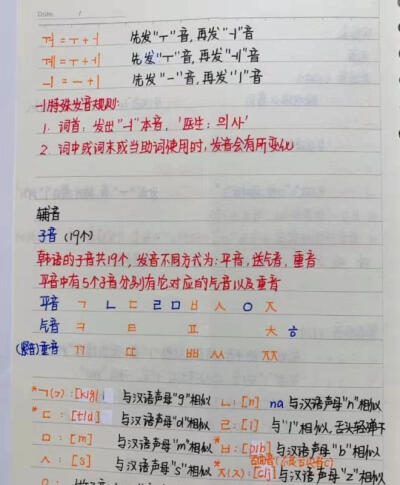 Date: /
ㅝ = ㅜ + ㅓ 先发"ㅜ"音,再发"ㅓ"音
ㅞ = ㅜ + ㅔ 先发"ㅜ"音,再发"ㅔ"音
ㅢ = ㅡ + ㅣ 先发"ㅡ"音,再发"ㅣ"音
ㅢ特殊发音规则:
1. 词首: 发出"ㅢ"本音, '医生: 의사'
2. 词中或词末或当助词使用时,发音会有所变化
辅音
子音 (19个)
韩语的子音共19个,发音不同方式为:平音,送气音,重音
平音中有5个子音分别有它对应的气音以及重音
平音 ㄱ ㄴ ㄷ ㄹ ㅁ ㅂ ㅅ ㅇ ㅈ
气音 ㅋ ㅌ ㅍ ㅊ ㅎ
(紧音)重音 ㄲ ㄸ ㅃ ㅆ ㅉ
*ㄱ(ㄱ): [k/g] 与汉语声母"g"相似 ㄴ: [n] na 与汉语声母"n"相似
*ㄷ: [t/d] 与汉语声母"d"相似 ㄹ: [l] 与"l"相似,舌头轻弹下
ㅁ: [m] 与汉语声母"m"相似 *ㅂ: [p/b] 与汉语声母"b"相似
ㅅ: [s] 与汉语声母"s"相似 *ㅈ(ㅈ): [c/j] 与汉语声母"z"相似